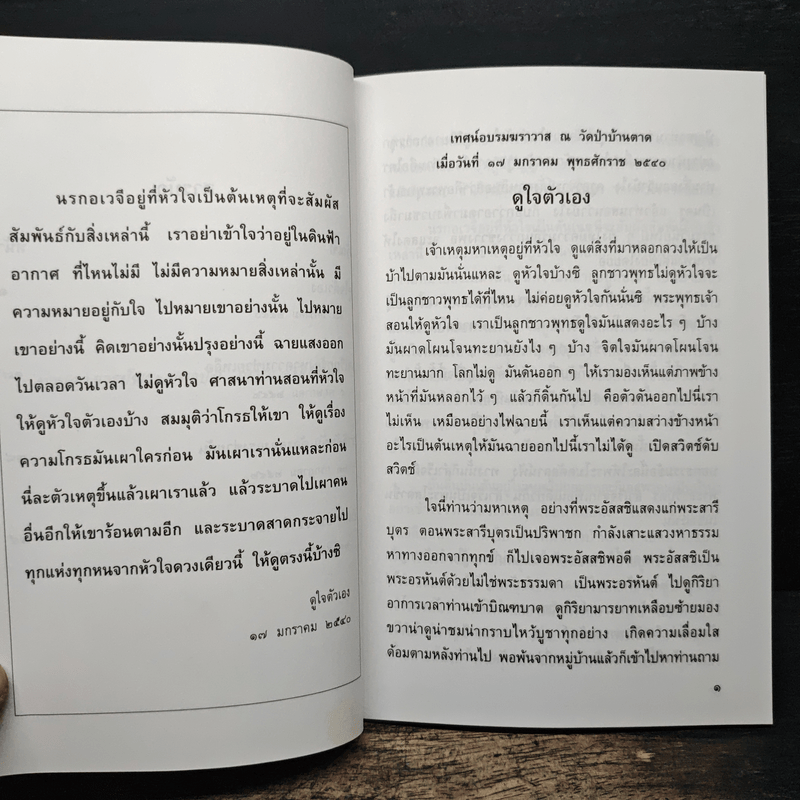 นรกอเวจีอยู่ที่หัวใจเป็นต้นเหตุที่จะสัมผัส
สัมพันธ์กับสิ่งเหล่านี้ เราอย่าเข้าใจว่าอยู่ในดินฟ้า
อากาศ ที่ไหนไม่มี ไม่มีความหมายสิ่งเหล่านั้น มี
ความหมายอยู่กับใจ ไปหมายเขาอย่างนั้น ไปหมาย
เขาอย่างนี้ คิดเขาอย่างนั้นปรุงอย่างนี้ ฉายแสงออก
ไปตลอดวันเวลา ไม่ดูหัวใจ ศาสนาท่านสอนที่หัวใจ
ให้ดูหัวใจตัวเองบ้าง สมมุติว่าโกรธให้เขา ให้ดูเรื่อง
ความโกรธมันเผาใครก่อน มันเผาเรานั่นแหละก่อน
นี่ละตัวเหตุขึ้นแล้วเผาเราแล้ว แล้วระบาดไปเผาคน
อื่นอีกให้เขาร้อนตามอีก และระบาดสาดกระจายไป
ทุกแห่งทุกหนจากหัวใจดวงเดียวนี้ ให้ดูตรงนี้บ้างซิ
ดูใจตัวเอง
๑๗ มกราคม ๒๕๔๐
เทศน์อบรมฆราวาส ณ วัดป่าบ้านตาด
เมื่อวันที่ ๑๗ มกราคม พุทธศักราช ๒๕๔๐
ดูใจตัวเอง
เจ้าเหตุมหาเหตุอยู่ที่หัวใจ ดูแต่สิ่งที่มาหลอกลวงให้เป็น
บ้าไปตามมันนั่นแหละ ดูหัวใจบ้างซิ ลูกชาวพุทธไม่ดูหัวใจจะ
เป็นลูกชาวพุทธได้ที่ไหน ไม่ค่อยดูหัวใจกันนั่นซิ พระพุทธเจ้า
สอนให้ดูหัวใจ เราเป็นลูกชาวพุทธดูใจมันแสดงอะไร ๆ บ้าง
มันผาดโผนโจนทะยานยังไง ๆ บ้าง จิตใจมันผาดโผนโจน
ทะยานมาก โลกไม่ดู มันดันออก ๆ ให้เรามองเห็นแต่ภาพข้าง
หน้าที่มันหลอกไว้ ๆ แล้วก็ดิ้นกันไป คือตัวดันออกไปนี้เรา
ไม่เห็น เหมือนอย่างไฟฉายนี้ เราเห็นแต่ความสว่างข้างหน้า
อะไรเป็นต้นเหตุให้มันฉายออกไปนี้เราไม่ได้ดู เปิดสวิตช์ดับ
สวิตช์
ใจนี้ท่านว่ามหาเหตุ อย่างที่พระอัสสชิแสดงแก่พระสารี
บุตร ตอนพระสารีบุตรเป็นปริพาชก กำลังเสาะแสวงหาธรรม
หาทางออกจากทุกข์ ก็ไปเจอพระอัสสชิพอดี พระอัสสชิเป็น
พระอรหันต์ด้วยไม่ใช่พระธรรมดา เป็นพระอรหันต์ ไปดูกิริยา
อาการเวลาท่านเข้าบิณฑบาต ดูกิริยามารยาทเหลือบซ้ายมอง
ขวาน่าดูน่าชมน่ากราบไหว้บูชาทุกอย่าง เกิดความเลื่อมใส
ด้อมตามหลังท่านไป พอพ้นจากหมู่บ้านแล้วก็เข้าไปหาท่านถาม
๑